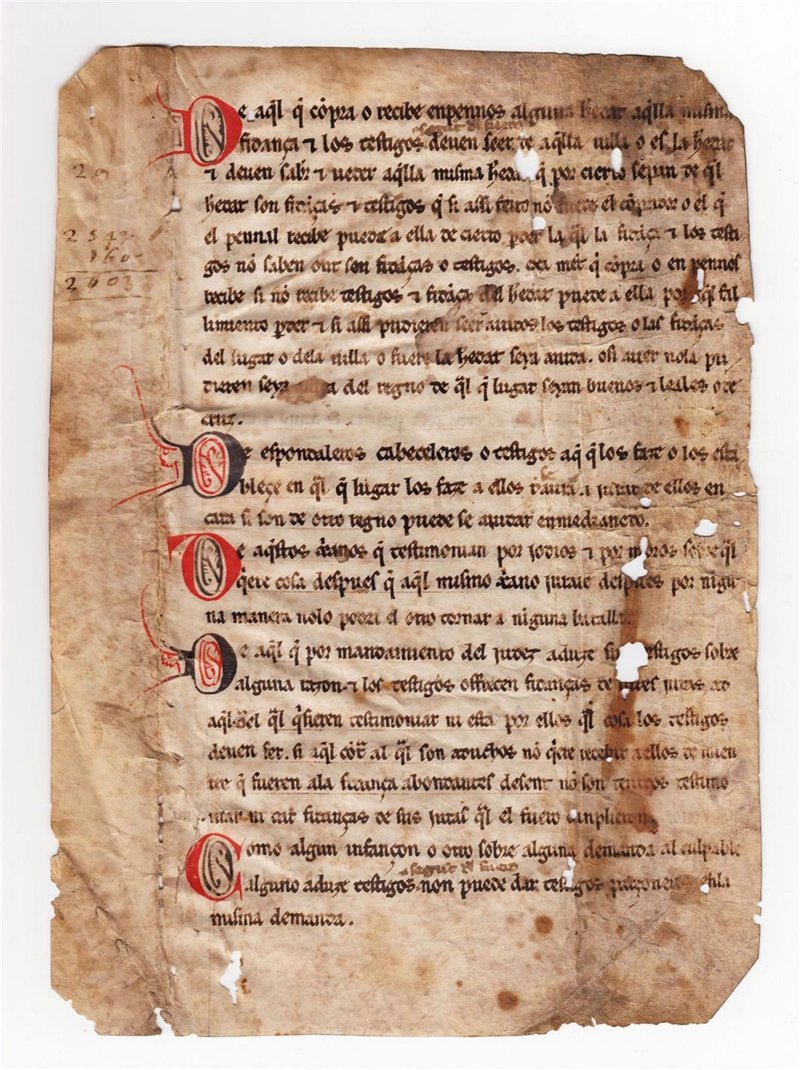 De aq̃l q̃ cõpra o recibe enpennos alguna hedat aq̃lla misma
segunt el fuero
fidança ⁊ los testigos deven seer de aq̃lla villa o es la hedat
⁊ deven sabr̃ ⁊ veder aq̃lla misma q̃ por cierto sepan de q̃l
hedat son fidãças ⁊ testigos q̃ si assi feito nõ fuere el cõprador o el q̃
el pennal recibe puede a ella de cierto pder la q̃l la fidãça ⁊ los testi
gos nõ saben ont son fidãças o testigos. q̃ cõpra o en pennos
recibe si nõ recibe testigos ⁊ fidãça del hedat puede a ella por q̃l fal
limiento pder ⁊ si assi pudieren seer avidos los testigos o las fidãças
del lugar o dela villa o fuere la hedat seya avida. o si aver nola pu
dieren seya del regno de q̃l q̃ lugar seyan buenos ⁊ leales o de

De espondaleros cabeceleros o testigos aq̃ q̃ los faze o los esta
bleçe en q̃l q̃ lugar los faze a ellos a jurar de ellos en
cara si son de otro regno puede se ajudar enmedianedo.
De aq̃stos xp̃anos q̃ testimonian por jodios ⁊ por moros sobre q̃l
q̃ere cosa despues q̃ aq̃l mismo xp̃ano juraie despues por nigu
na manera nolo podri el otro tornar a niguna batalla.
De aq̃l q̃ por mandamiento del judez aduze testigos sobre
alguna razon ⁊ los testigos offrecen fidanças de juras
aq̃l del q̃l q̃sieren testimoniar ni esta por ellos q̃l cosa los testigos
deven fer. si aq̃l al q̃l son aduchos nõ q̃ere recebir a ellos de
q̃ fueren ala fidança abondantes desent nõ son testimo
niar ni dar fidanças de sus juras q̃l el fuero
Como algun infançon o otro sobre alguna demanda al culpable
segunt el fuero
alguno aduze testigos non puede dar testigos enla
misma demanda.
2543
160
2603